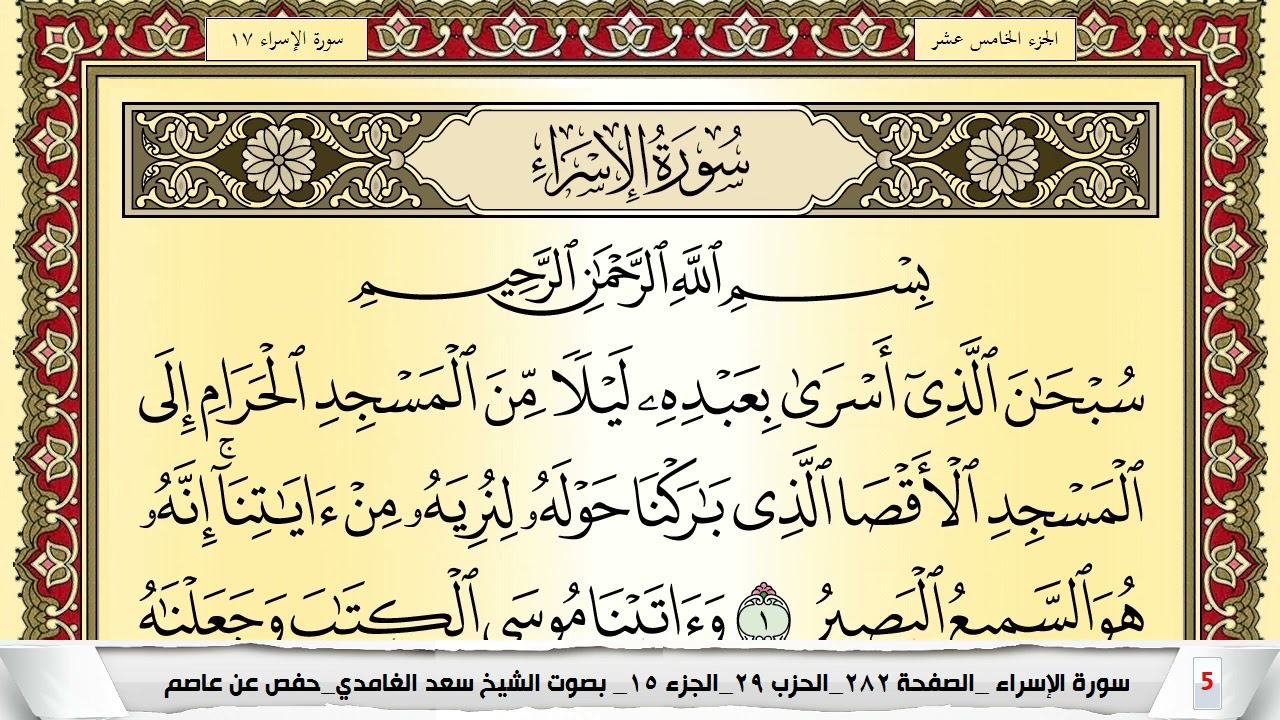 الجزء الخامس عشر
سورة الإسراء ١٧
سُورَةُ الإِسْرَاءِ
بِسْمِ ٱللَّهِ ٱلرَّحْمَٰنِ ٱلرَّحِيمِ
سُبْحَٰنَ ٱلَّذِىٓ أَسْرَىٰ بِعَبْدِهِۦ لَيْلًا مِّنَ ٱلْمَسْجِدِ ٱلْحَرَامِ إِلَى
ٱلْمَسْجِدِ ٱلْأَقْصَا ٱلَّذِى بَٰرَكْنَا حَوْلَهُۥ لِنُرِيَهُۥ مِنْ ءَايَٰتِنَآ ۚ إِنَّهُۥ
هُوَ ٱلسَّمِيعُ ٱلْبَصِيرُ ١ وَءَاتَيْنَا مُوسَى ٱلْكِتَٰبَ وَجَعَلْنَٰهُ
5
سورة الإسراء _الصفحة ٢٨٢_الحزب ٢٩_الجزء ١٥_ بصوت الشيخ سعد الغامدي_حفص عن عاصم